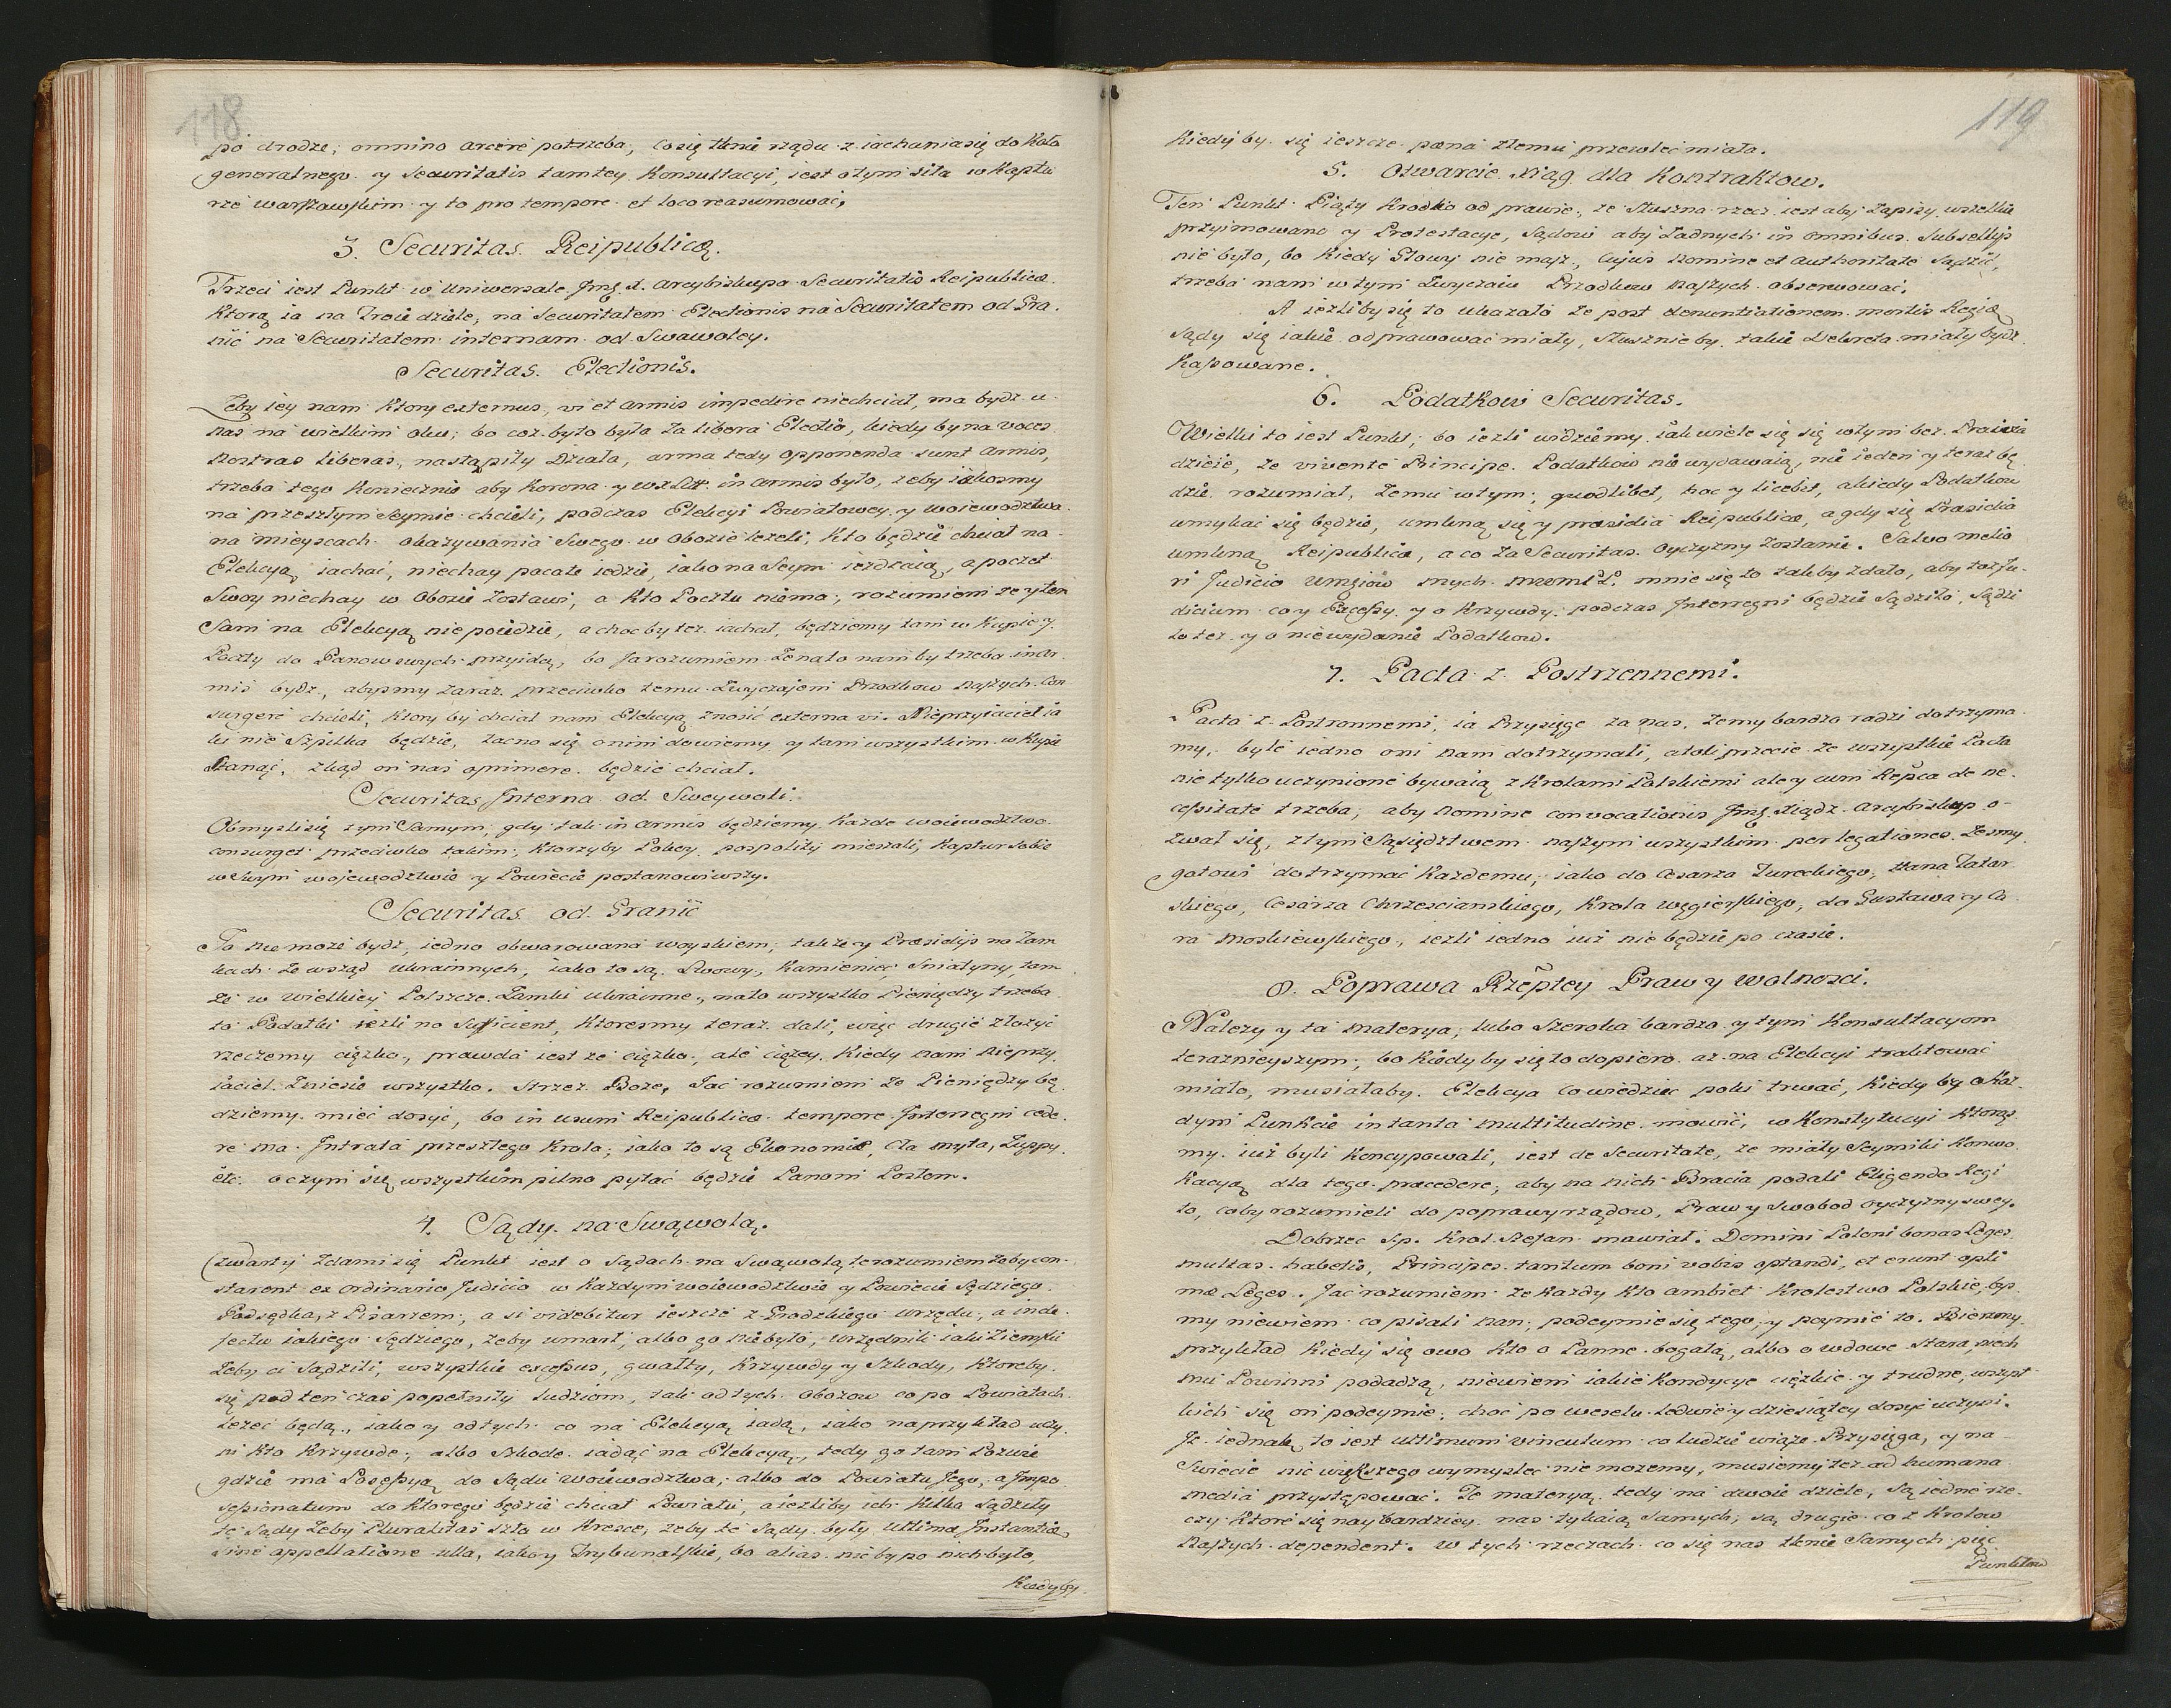 118
po drodze; omnino arcere potrzeba, co się tknie rządu z iachania się do Koła
generalnego y Securitatis tamtey Konsultacyi, iest o tym siła w Kaptu
rze warszawskim y to pro tempore et loco reasumować.
3. Securitas Reipublicæ.
Trzeci iest Punkt w Uniwersale Jmę X. Arcybiskupa Securitatis Reipublicæ
Ktorą ia na Troie dziele, na Securitatem Electionis na Securitatem od Gra-
nic na Securitatem internam od Swawoley.
Securitas Electionis.
Zeby iey nam Ktory externus, vi et armis impedire niechciał, ma bydź u
nas na wielkim oku; bo coż by to była za libera Electio, kiedy by na voces
nostras liberas, nastąpiły Działa, arma tedy opponenda sunt armis,
trzeba tego Koniecznie aby Korona y WXLitt. in armis było, żeby iakosmy
na przeszłym Seymie chcieli, podczas Elekcyi Powiatowey y woiewodztwa
na mieyscach okazywania Swego w Obozie leżeli, Kto będzie chciał na
Elekcyą iachać, niechay pacate iedzie, iako na Seym ieżdżaią, a poczet
Swoy niechay w Obozie Zostawi, a Kto Pocztu niema, rozumiem ze y ten
Sam na Elekcyą nie poiedzie, a choc by też iachał, będziemy tam w Kupie y
Poczty do Panow swych przyidą, bo Ja rozumiem Ze na to nam by trzeba in ar
mis bydź, abysmy zaraz przeciwko temu Zwyczajem Przodkow naszych con
surgere chcieli, Ktory by chciał nam Elekcyą znosić externa vi. Nieprzyiaciel ia
ki nie Szpilka będzie, Zacno się o nim dowiemy y tam wszystkim w Kupie
Stanąć, zkąd on nas oprimere będzie chciał.
Securitas Interna od Sweywoli.
Obmysli się tym Samym, gdy tak in armis będziemy Każde woiewodztwo
consurget przeciwko takim, Ktorzyby Pokoy pospolity mieszali, Kaptur sobie
w Swym wojewodztwie y Powiecie postanowiwszy.
Securitas od Granic
Ta nie może bydź, iedno obwarowana woyskiem, także y Præsidijs na Zam
kach Ze wsząd Ukrainnych, iako to są Lwowy, Kamieniec, Sniatyny, tam
że w Wielkiey Polszcze Zamki ukrainne, na to wszystko Pieniędzy trzeba
to Podatki ieżli no sufficient, Ktoresmy teraz dali, więc drugie złożyć
rzeczemy ciężko, prawda iest że ciężko, ale ciężey Kiedy nam nieprzy
iaciel Zniesie wszystko. Strzeż Boże, Jać rozumiem że Pieniędzy bę
dziemy mieć dosyć, bo in usum Reipublicæ tempore Interregni cede
re ma Intrata przeszłego Krola, iako to są Ekonomie, Cła myta, Zuppy
etc. o czym się wszystkim pilno pytać będzie Panom Posłom.
4. Sądy na Swąwolą.
Czwarty Zda mi się Punkt iest o Sądach na Swąwolą te rozumiem żeby con-
starent ex ordinario Judicio w Każdym woiewodztwie y Powiecie Sędziego
Podsędka, z Pisarzem, a si videbitur ieszcze z Grodzkiego urzędu, a in de-
fectu iakiego Sędziego, żeby umarł, albo go nie było, urzędnik iaki Ziemski
Zeby ci Sądzili, wszystkie excessus, gwałty, Krzywdy y Szkody, Ktoreby
się pod ten czas popełniły ludziom, tak od tych obozow co po Powiatach
leżeć będą, iako y od tych co na Elekcyą iadą, iako naprzykład uczy
ni Kto Krzywdę, albo Szkodę iadąc na Elekcyą, tedy go tam Pozwie
gdzie ma Posessyą do Sądu Woiewodztwa, albo do Powiatu Jego, a Impo
sessionatum do Ktorego będzie chciał Powiatu, a ieżliby ich Kilka Sądziły
te Sądy Zeby Pluralitas szła w Kresce, żeby te Sądy były Ultima Instantia
sine appellatione ulla, iako y Trybunalskie, bo alias nic by po nich było,
Kiedyby
119
Kiedy by się ieszcze pæna złemu przewlec miała.
5. Otwarcie Xiąg dla Kontraktow.
Ten Punkt Piąty Krodko odprawię, że Słuszna rzecz iest aby Zapisy wszelkie
przyimowano y Protestacye, Sądow aby żadnych in omnibus Subsellijs
nie było, bo Kiedy Głowy nie masz, Cujus Nomine et Authoritate Sądzić,
trzeba nam w tym Zwyczaiu Przodkow naszych obserwować.
A ieżliby się to ukazało że post denuntiationem mortis Regiæ
Sądy się iakie odprawować miały, słusznie by takie Dekreta miały bydź
Kassowane.
6. Podatkow Securitas.
Wielki to iest Punkt, bo ieżli widziemy iak wiele się się w tym bez Prawia
dzieie, że vivente Principe Podatkow nie wydawaią, nie ieden y teraz bę
dzie rozumiał, Zemu w tym, quodlibet, hoc y licebit, a kiedy Podatkow
umykać się będzie, umkną się y præsidia Reipublicæ, a gdy się Præsidia
umkną Reipublicæ, a co za Securitas Oyczyzny Zostanie. Salvo melio
ri Judicio mnie się to takby zdało, aby toż Ju-
dicium co y Excessy y o Krzywdy podczas Interregni będzie Sądziło, Sądzi
ło też y o niewydanie Podatkow.
7. Pacta z Postrzennemi.
Pacta z Postronnemi, ia Przysięgę za nas, Zemy bardzo radzi dotrzyma
my, byle iedno oni nam dotrzymali, atoli przecie że wszystkie Pacta
nie tylko uczynione bywaią z Krolami Polskiemi ale y cum Repca de ne-
cessitate trzeba, aby nomine convocationis Jmę Xiądz Arcybiskup o-
zwał się, z tym Sąsiędztwem naszym wszystkim per legationes Zesmy
gotowi dotrzymać Każdemu, iako do Cesarza Tureckiego, Hana Tatar
skiego, Cesarza Chrzescianskiego, Krola węgierskiego, do Gustawa y Ca
ra Moskiewskiego, ieżli iedno iuż nie będzie po czasie.
8. Poprawa Rzẽptey Praw y wolnosci.
Należy y ta materya, lubo Szeroka bardzo y tym Konsultacyom
teraznieyszym, bo Kiedy by się to dopiero aż na Elekcyi traktować
miało, musiałaby Elekcya Co wiedzieć poki trwać, Kiedy by o Każ-
dym Punkcie in tanta multitudine mowić, w Konstytucyi Ktorąs
my iuż byli Koncypowali, iest de Securitate, że miały Seymiki Konwo
Kacyą dla tego præcedere, aby na nich Bracia podali Eligendo Regi
to, coby rozumieli do poprawy rządow, Praw y Swobod oyczyzny swey.
Dobrzec Sp. Krol Stefan mawiał: Domini Poloni bonas Leges
multas habetis, Principes tantum boni vobis optandi, et erunt opti
mæ Leges. Jać rozumiem że Każdy Kto ambiet Krolestwo Polskie, bys
my niewiem co pisali nan, podeymie się tego, y poymie to. Bierzmy
przykład Kiedy się owo Kto o Pannę bogatą, albo o wdowę Stara, niech
mu Powinni podadzą, niewiem iakie Kondycye ciężkie y trudne, wszyst
kich się on podeymie, choć po weselu ledwie y dziesiątey dosyć uczyni.
Jż iednak to iest ultimum vinculum co ludzie wiąże Przysięga, y na
Swiecie nic większego wymyslec nie możemy, musiemy też ad humana
media przystępować. Te materyą tedy na dwoie dziele, Są iedne rze-
czy Ktore się naybardziey nas tykaią Samych, są drugie co z Krolow
naszych dependent. W tych rzeczach co się nas tknie Samych pięć
Punktow